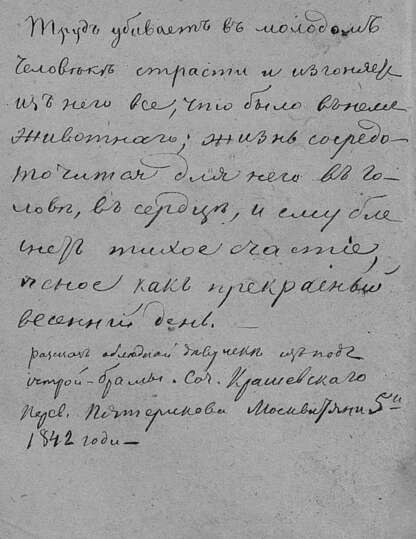 Трудъ убиваетъ въ молодомъ
человѣкѣ страсти и изгоняетъ
изъ него все, что было въ нёмъ
животнаго; жизнь сосредо-
точится для него въ го-
ловѣ, въ сердцѣ, и ему бле
снетъ тихое счастіе,
ясное какъ прекрасный
весенній день.
дѣвченки изъ подъ
острой-брамы. Соч. Крашевскаго
Перев. Москва 5го
1842 годи—